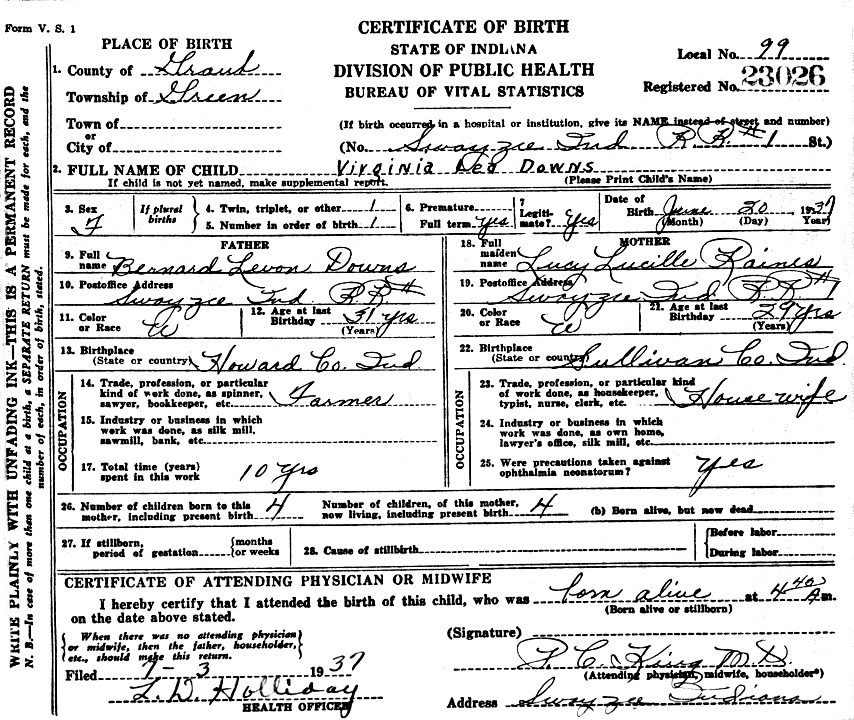 Form V. S. 1
CERTIFICATE OF BIRTH
PLACE OF BIRTH
STATE OF INDIANA
Local No. 99
1. County of Grant
DIVISION OF PUBLIC HEALTH
Registered No. 23026
Township of Green
BUREAU OF VITAL STATISTICS
Town of
or
City of
(If birth occurred in a hospital or institution, give its NAME instead of street and number)
(No. Swayzee Ind R R # 1 St.)
2. FULL NAME OF CHILD Virginia Lea Downs
If child is not yet named, make supplemental report.
(Please Print Child's Name)
3. Sex F
If plural births
4. Twin, triplet, or other 1
5. Number in order of birth 1
6. Premature
Full term yes
7 Legitimate? yes
Date of Birth June 20 1937
(Month) (Day) Year)
FATHER
9. Full name Bernard Levon Downs
10. Postoffice Address
Swayzee Ind RR #
11. Color or Race W
12. Age at last Birthday 31 yrs
(Years)
13. Birthplace
(State or country) Howard Co. Ind
OCCUPATION
14. Trade, profession, or particular
kind of work done, as spinner,
sawyer, bookkeeper, etc. Farmer
15. Industry or business in which
work was done, as silk mill,
sawmill, bank, etc.
17. Total time (years)
spent in this work 10 yrs
MOTHER
18. Full maiden name Lucy Lucille Raines
19. Postoffice Address
Swayzee Ind RR #1
20. Color or Race W
21. Age at last Birthday 29 yrs
(Years)
22. Birthplace
(State or country) Sullivan Co. Ind.
OCCUPATION
23. Trade, profession, or particular kind
of work done, as housekeeper,
typist, nurse, clerk, etc. House wife
24. Industry or business in which
work was done, as own home,
lawyer's office, silk mill, etc.
25. Were precautions taken against
ophthalmia neonatorum? yes
26. Number of children born to this
mother, including present birth 4
Number of children, of this mother,
now living, including present birth 4
(b) Born alive, but now dead
27. If stillborn,
period of gestation {months
or weeks
28. Cause of stillbirth
{Before labor
During labor
CERTIFICATE OF ATTENDING PHYSICIAN OR MIDWIFE
I hereby certify that I attended the birth of this child, who was born alive at 4 40 A m.
on the date above stated.
(Born alive or stillborn)
When there was no attending physician
or midwife, then the father, householder,
etc., should make this return.
(Signature)
P. C. King M.D.
(Attending physician, midwife, householder*)
Filed 7 3 1937
L. D. Holliday
HEALTH OFFICER
Address Swayzee Indiana
WRITE PLAINLY WITH UNFADING INK—THIS IS A PERMANENT RECORD
N. B.—In case of more than one child at a birth, a SEPARATE RETURN must be made for each, and the
number of each, in order of birth, stated.